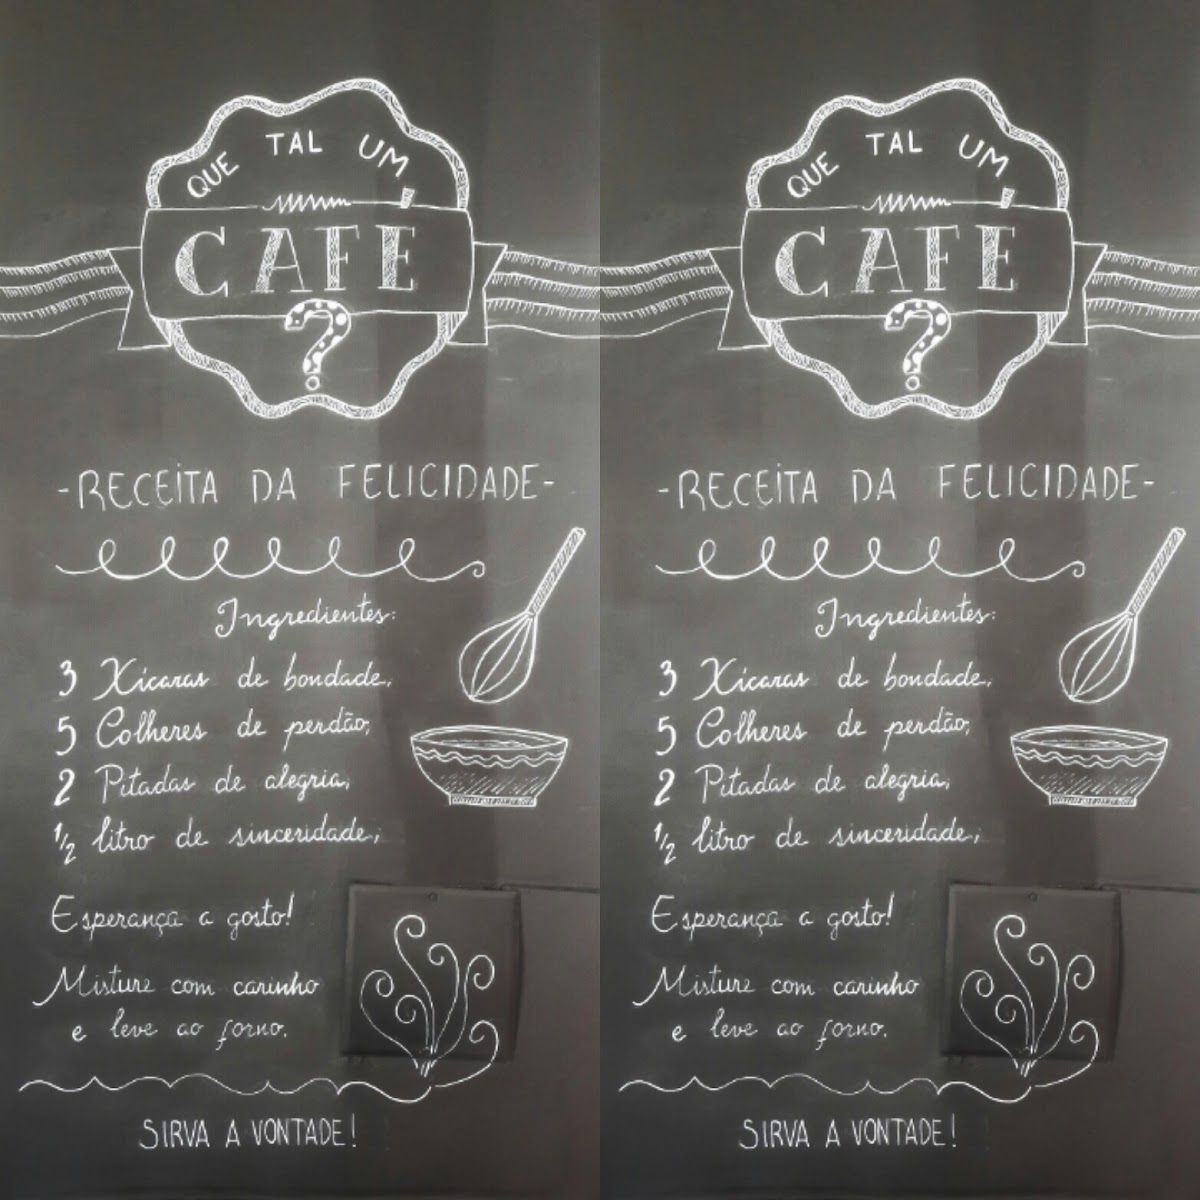 QUE TAL UM
CAFÉ
?
-RECEITA DA FELICIDADE-
Ingredientes:
3 Xícaras de bondade,
5 Colheres de perdão,
2 Pitadas de alegria,
1/2 litro de sinceridade,
Esperança a gosto!
Misture com carinho
e leve ao forno.
SIRVA A VONTADE!
QUE TAL UM
CAFÉ
?
-RECEITA DA FELICIDADE-
Ingredientes:
3 Xícaras de bondade,
5 Colheres de perdão,
2 Pitadas de alegria,
1/2 litro de sinceridade,
Esperança a gosto!
Misture com carinho
e leve ao forno.
SIRVA A VONTADE!